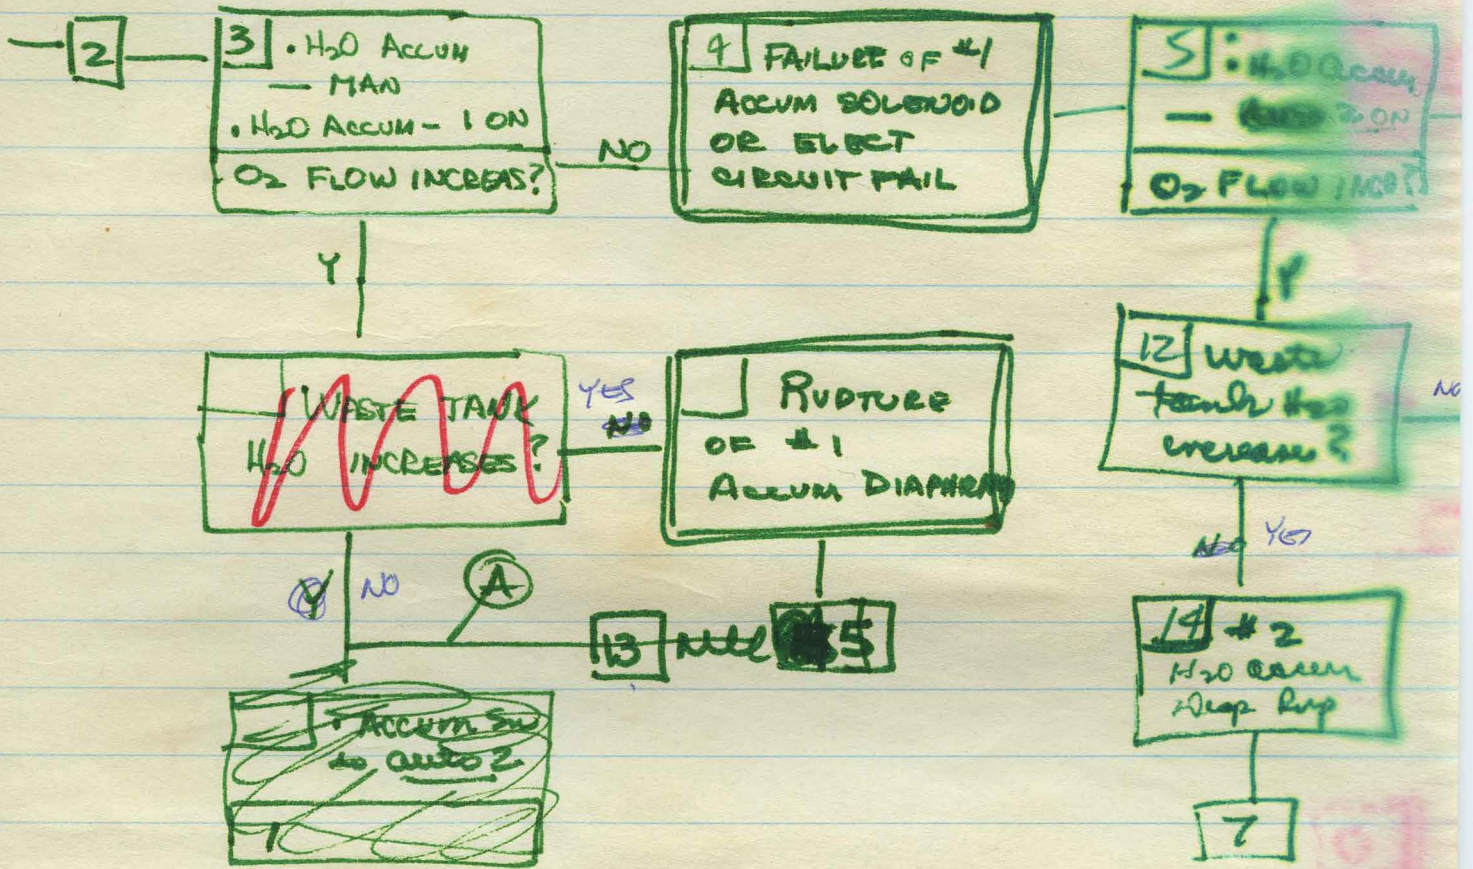 2
3 • H2O ACCUM
— MAN
• H2O ACCUM - 1 ON
O2 FLOW INCREAS?
NO
4 FAILURE OF #1
ACCUM SOLENOID
OR ELECT
CIRCUIT FAIL
5 • H2O accum
— 2 ON
O2 FLOW INCR?
Y
Y
WASTE TANK
H2O INCREASES?
YES
NO
RUPTURE
OF #1
ACCUM DIAPHRAM
12 waste
tank H2O
increases?
NO
Y NO
A
NO YES
13
5
14 #2
H2O accum
Diap Rup
• ACCUM SW
to auto 2
7